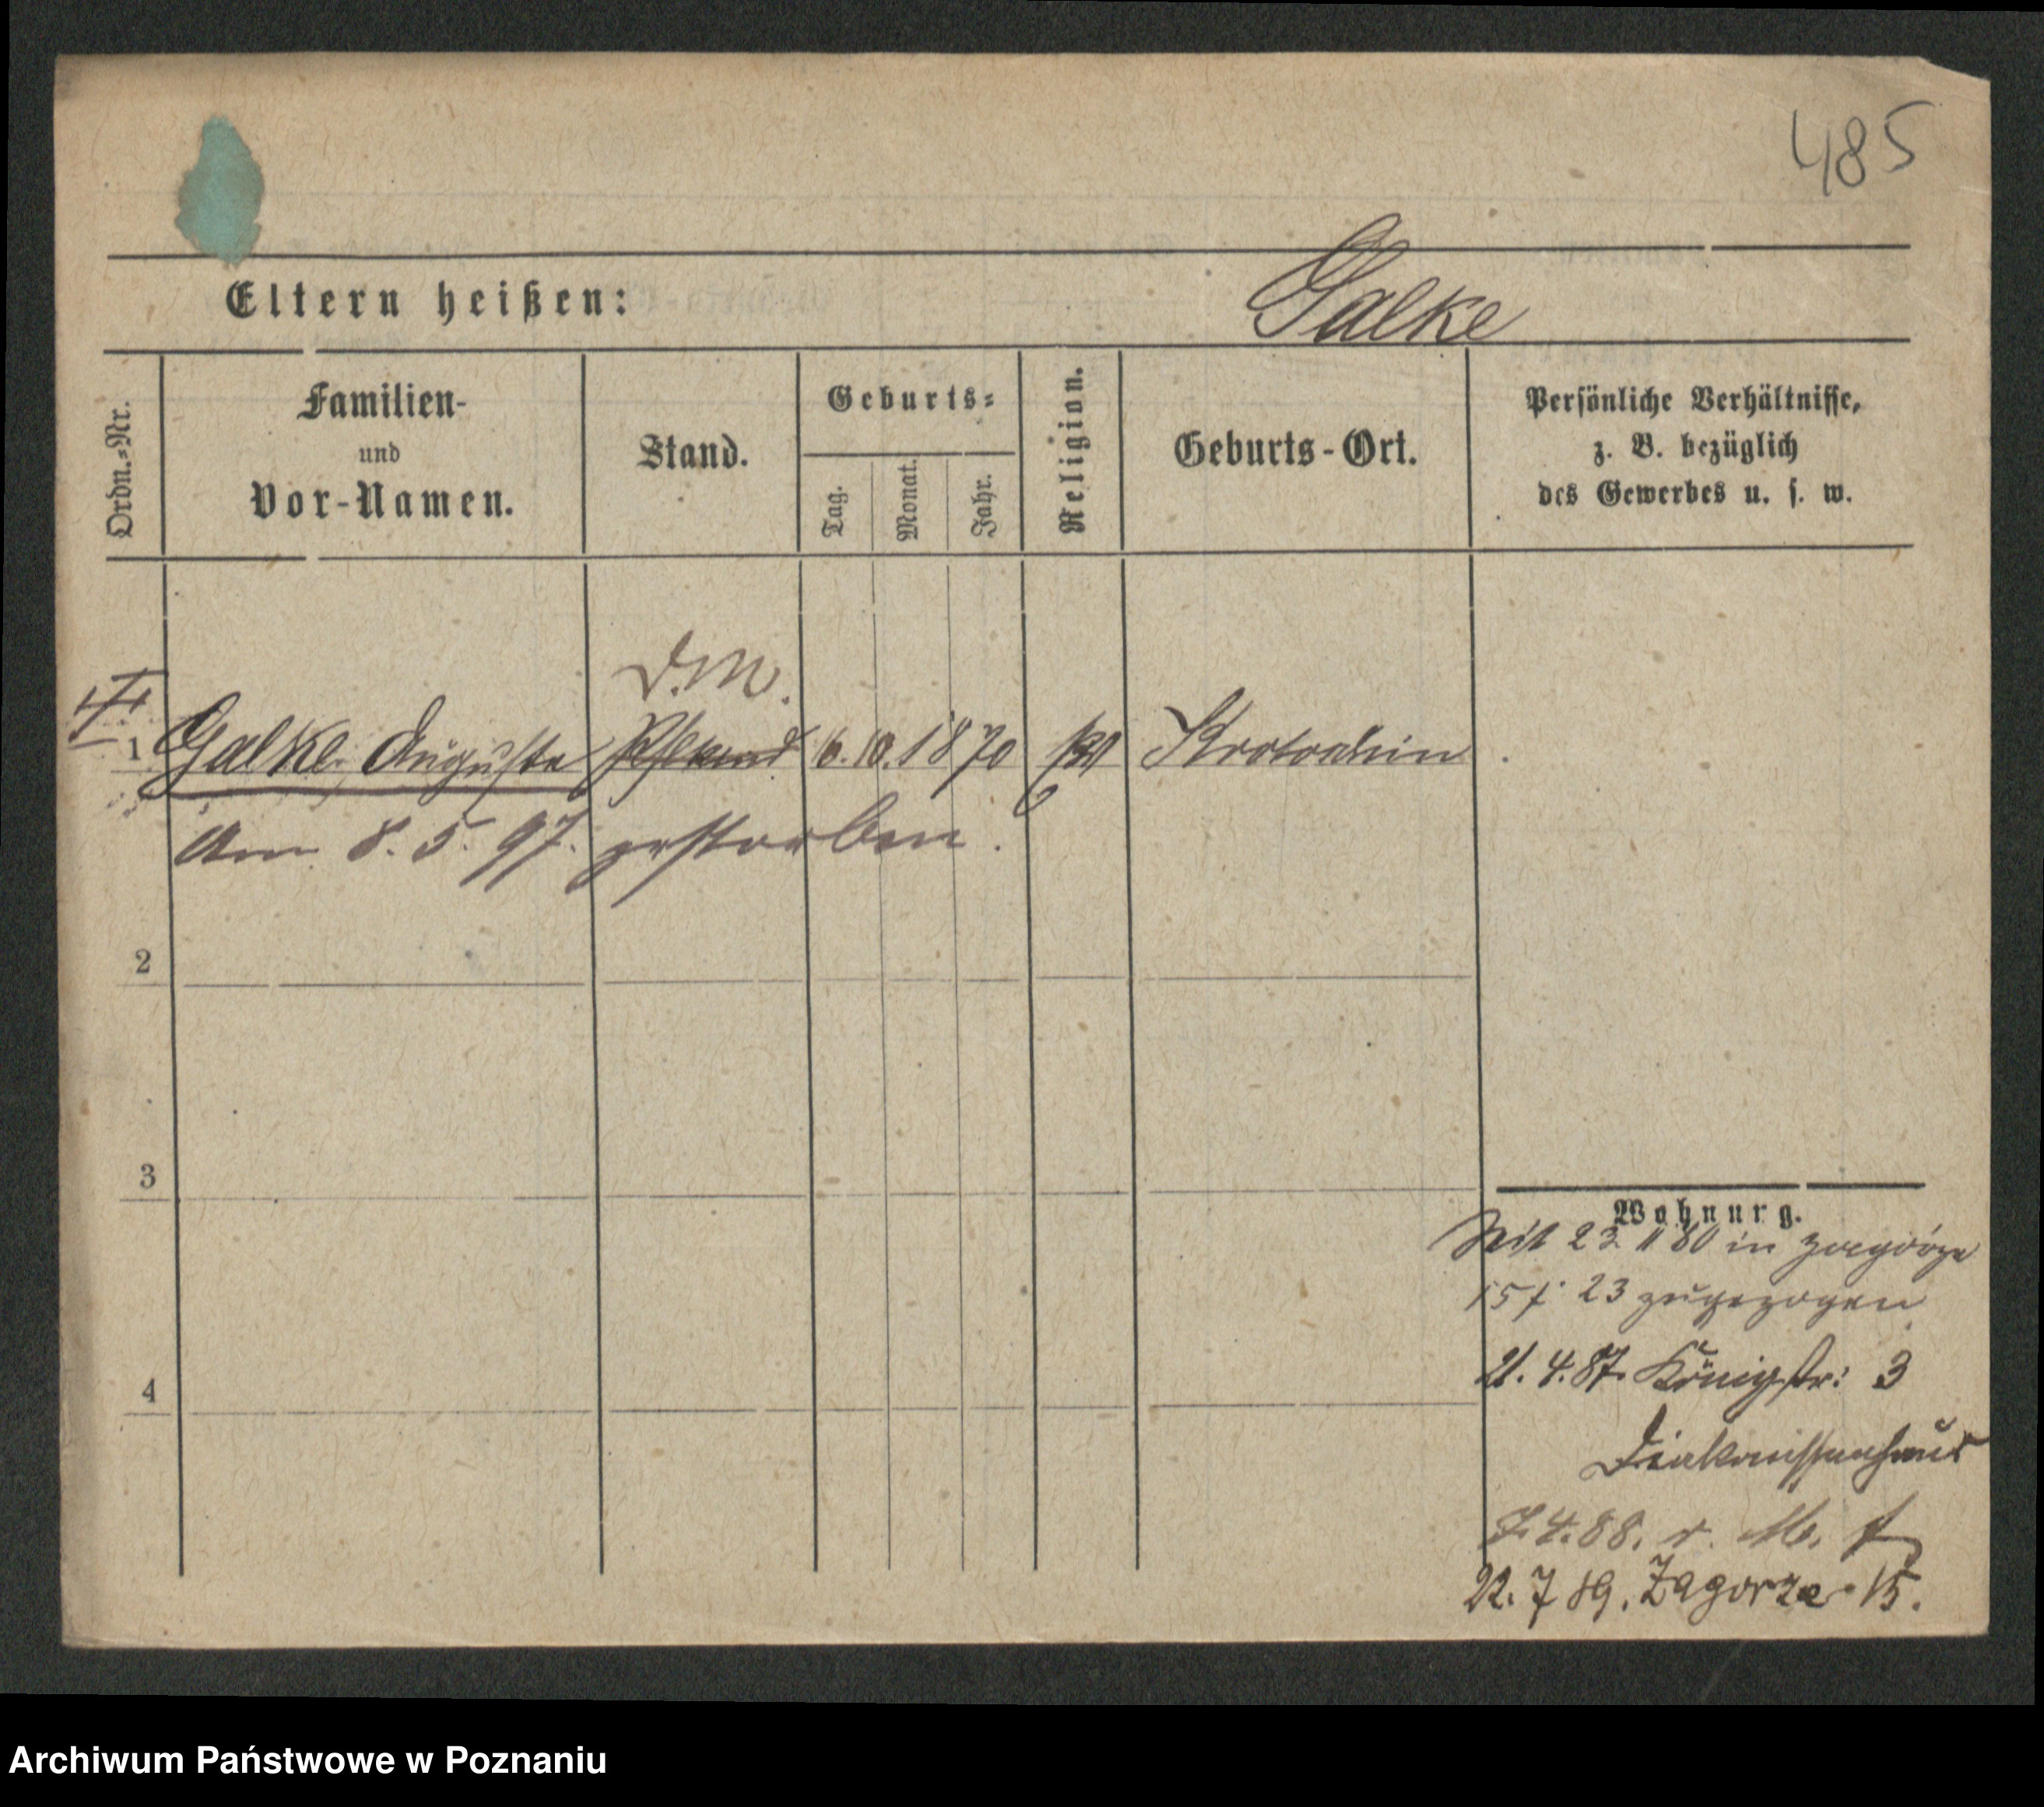 485
Eltern heißen:
Galke
Ordn.-Nr.
Familien-
und
Vor-Namen.
Stand.
Geburts-
Tag.
Monat.
Jahr.
Religion.
Geburts-Ort.
Persönliche Verhältnisse,
z. B. bezüglich
des Gewerbes u. s. w.
D.M.
1 Galke Auguste 6. 10. 1870 Krotoschin
Am 8. 5. 97. gestorben.
2
3
4
Wohnung.
Seit 23 11 80 in Zagorze
15 f. 23 zugezogen
21. 4. 87. Königstr: 3
Diakonissenhaus
7. 4. 88. v.
22. 7 89. Zagorze 15.
Archiwum Państwowe w Poznaniu